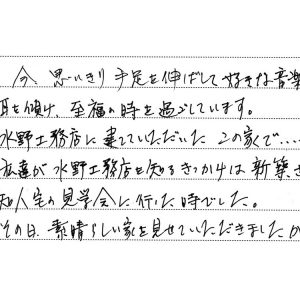 今 思いきり手足を伸ばして好きな音楽
耳を傾け、至福の時を過ごしています。
水野工務店に建てていただいたこの家で‥‥
友達が水野工務店を知るきっかけは新築さ
知人宅の見学会に行った時でした。
その日、素晴らしい家を見せていただきましたが